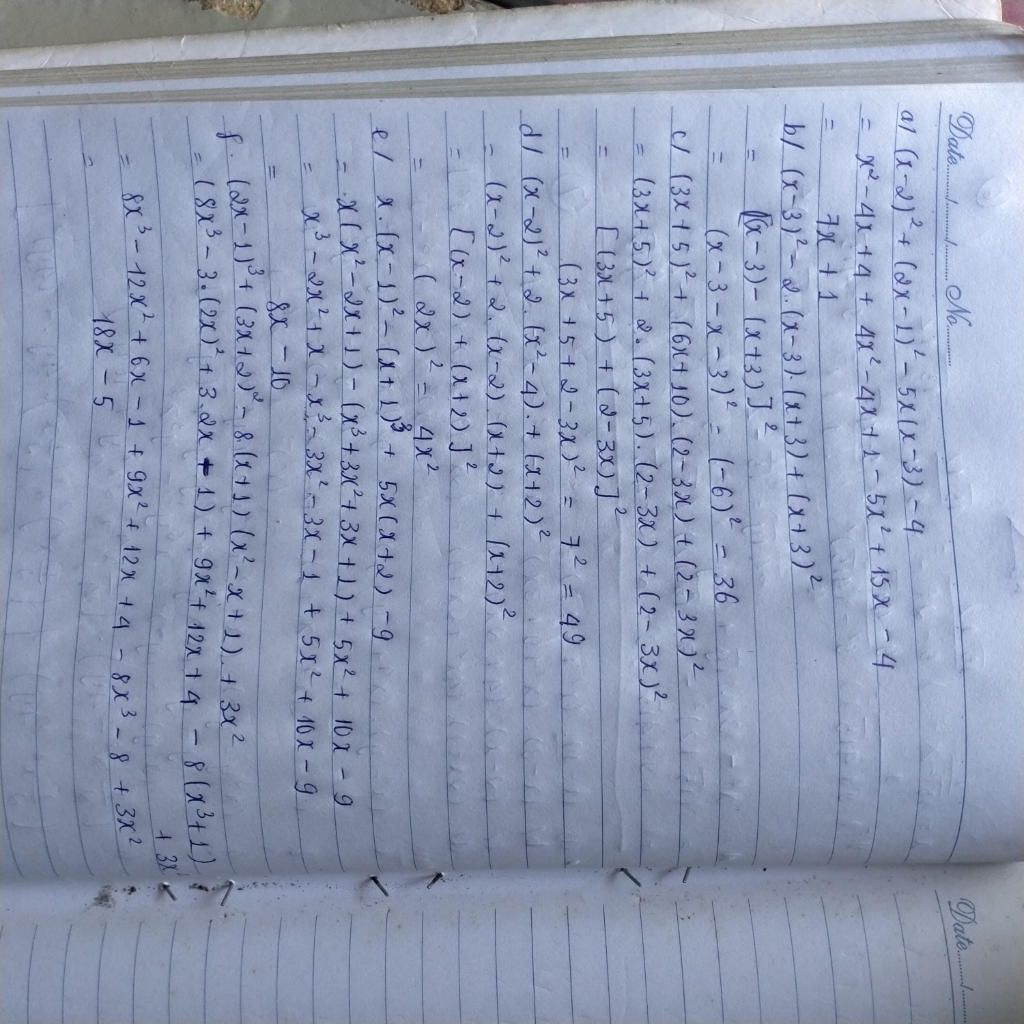 Date....../....../...... No..........
a/ (x-2)² + (2x-1)² - 5x(x-3) - 4
= x² - 4x + 4 + 4x² - 4x + 1 - 5x² + 15x - 4
= 7x + 1
b/ (x-3)² - 2.(x-3).(x+3) + (x+3)²
= [(x-3) - (x+3)]²
= (x - 3 - x - 3)² = (-6)² = 36
c/ (3x+5)² + (6x+10).(2-3x) + (2-3x)²
= (3x+5)² + 2.(3x+5).(2-3x) + (2-3x)²
= [(3x+5) + (2-3x)]²
= (3x + 5 + 2 - 3x)² = 7² = 49
d/ (x-2)² + 2.(x²-4) + (x+2)²
= (x-2)² + 2.(x-2).(x+2) + (x+2)²
= [(x-2) + (x+2)]²
= (2x)² = 4x²
e/ x.(x-1)² - (x+1)³ + 5x(x+2) - 9
= x(x² - 2x + 1) - (x³ + 3x² + 3x + 1) + 5x² + 10x - 9
= x³ - 2x² + x - x³ - 3x² - 3x - 1 + 5x² + 10x - 9
= 8x - 10
f. (2x-1)³ + (3x+2)² - 8(x+1)(x²-x+1) + 3x²
= (8x³ - 3.(2x)² + 3.2x - 1) + 9x² + 12x + 4 - 8(x³+1)
+ 3x²
= 8x³ - 12x² + 6x - 1 + 9x² + 12x + 4 - 8x³ - 8 + 3x²
= 18x - 5
Date....../......